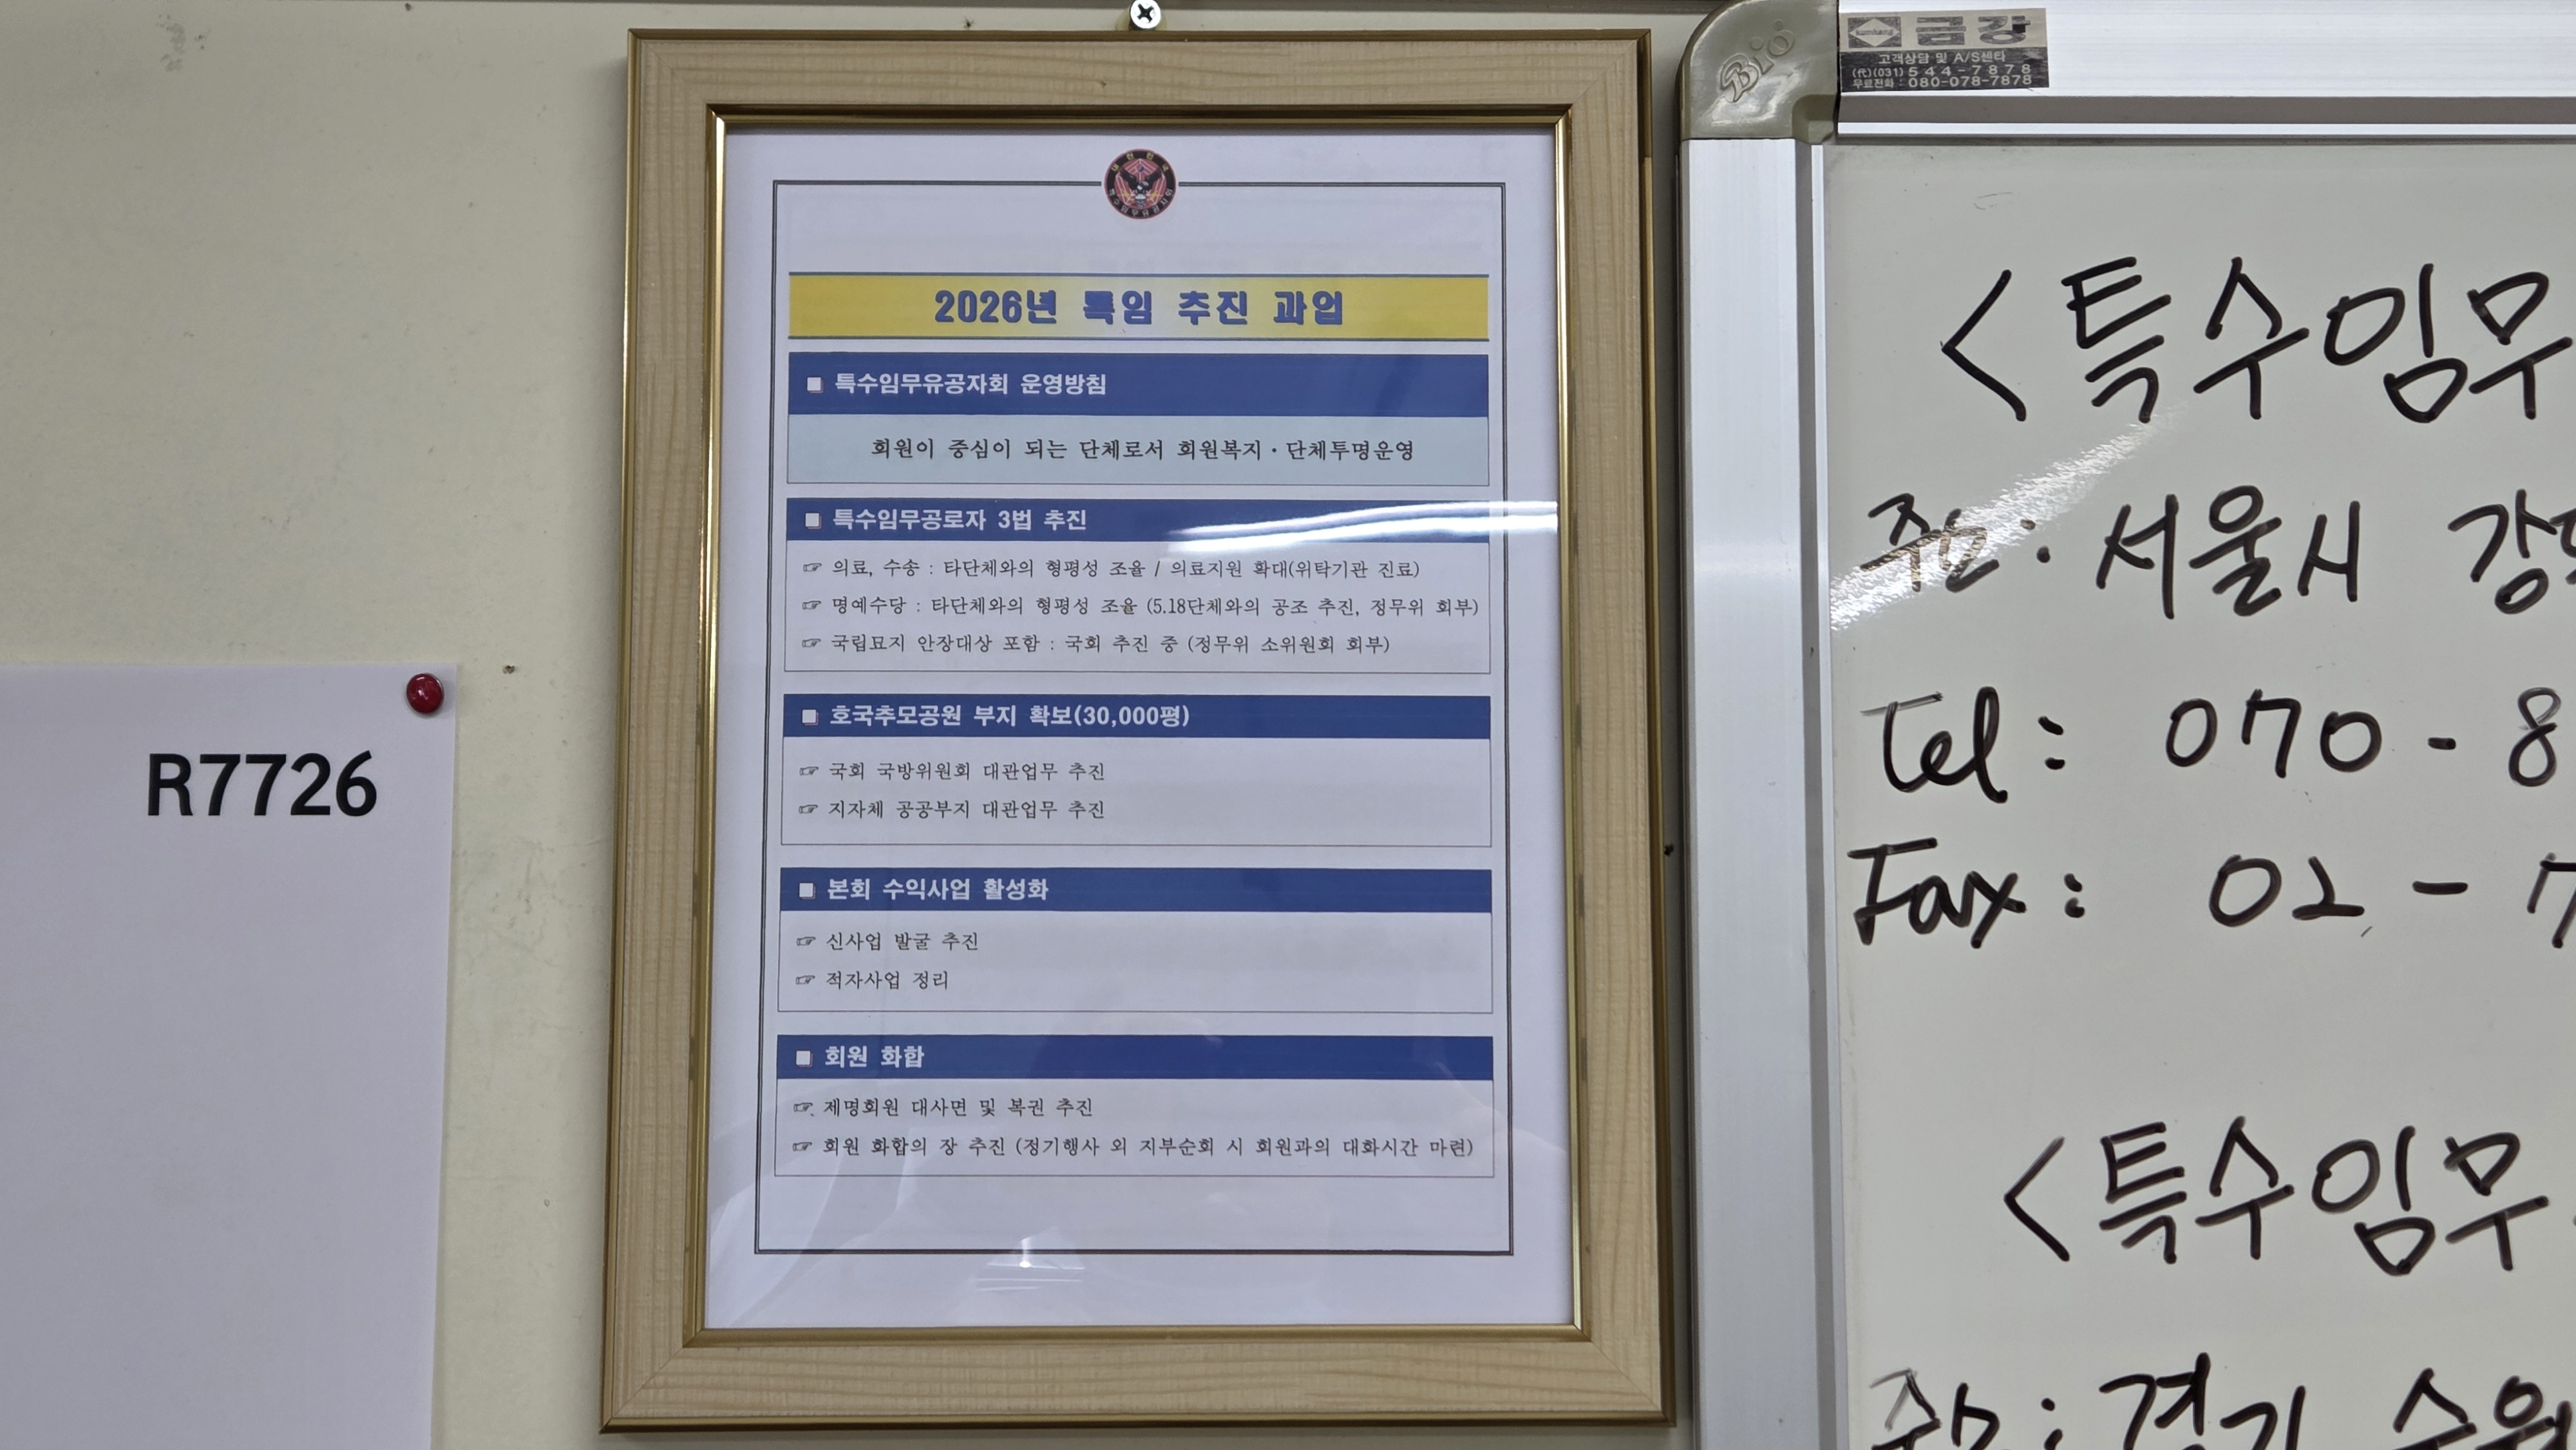 R7726
2026년 특임 추진 과업
특수임무유공자회 운영방침
회원이 중심이 되는 단체로서 회원복지·단체투명운영
특수임무공로자 3법 추진
☞ 의료, 수송 : 타단체와의 형평성 조율 / 의료지원 확대(위탁기관 진료)
☞ 명예수당 : 타단체와의 형평성 조율 (5.18단체와의 공조 추진, 정무위 회부)
☞ 국립묘지 안장대상 포함 : 국회 추진 중 (정무위 소위원회 회부)
호국추모공원 부지 확보(30,000평)
☞ 국회 국방위원회 대관업무 추진
☞ 지자체 공공부지 대관업무 추진
본회 수익사업 활성화
☞ 신사업 발굴 추진
☞ 적자사업 정리
회원 화합
☞ 제명회원 대사면 및 복권 추진
☞ 회원 화합의 장 추진 (정기행사 외 지부순회 시 회원과의 대화시간 마련)
Bio
금강
고객상담 및 A/S센타
(代)(031)544-7878
무료전화 : 080-078-7878
<특수임무
주소: 서울시
Tel: 070-8
Fax: 02-7
<특수임무
주소: 경기 수원